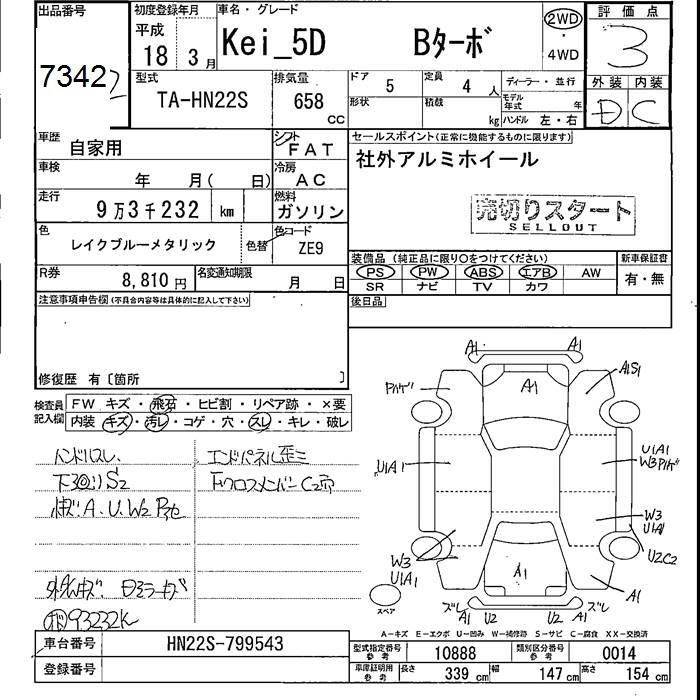 出品番号
73422
初度登録年月
平成
18 3月
車名・グレード
Kei_5D Bターボ
2WD
・
4WD
評価点
3
型式
TA-HN22S
排気量
658 CC
ドア 5
定員 4 人
ディーラー・並行
形状
積載 kg
モデル年式 年
ハンドル 左・右
外装 内装
D C
車歴
自家用
シフト
FAT
セールスポイント(正常に機能するものに限ります)
社外アルミホイール
車検
年 月( 日)
冷房
AC
走行
9万3千232 km
燃料
ガソリン
売切りスタート
SELLOUT
色
レイクブルーメタリック
色替
色コード
ZE9
装備品(純正品に限り○をつけてください)
新車保証書
PS PW ABS エアB AW
SR ナビ TV カワ
有・無
R券
8,810円
名変通知期限
月 日
後日品
注意事項申告欄(不具合内容等は具体的に記入して下さい)
修復歴 有〔箇所 〕
検査員記入欄
FW キズ・飛石・ヒビ割・リペア跡・×要
内装 キズ・汚レ・コゲ・穴・スレ・キレ・破レ
ハンドルスレ
下廻りS2
エンドパネル歪ミ
FクロスメンバーC2穴
A.U.W2
93232K
A1 A1
A1
A1S1
U1A1
U1A1
W3
W3
U1A1
W3
U1A1
U2C2
A1
A1
ズレ A1 U2 U2 A1 ズレ
スペア
A-キズ E-エクボ U-凹み W-補修跡 S-サビ C-腐食 XX-交換済
車台番号
HN22S-799543
型式指定番号 参考
10888
類別区分番号 参考
0014
登録番号
車庫証明用 参考
長さ 339 cm
幅 147 cm
高さ 154 cm